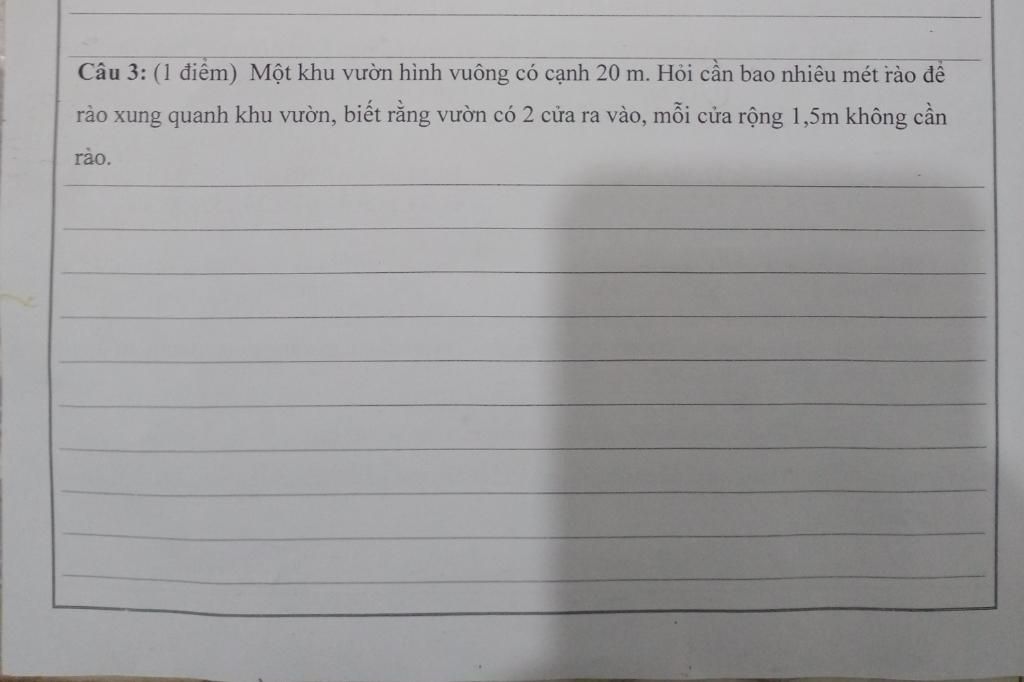 Câu 3: (1 điểm) Một khu vườn hình vuông có cạnh 20 m. Hỏi cần bao nhiêu mét rào để
rào xung quanh khu vườn, biết rằng vườn có 2 cửa ra vào, mỗi cửa rộng 1,5m không cần
rào.